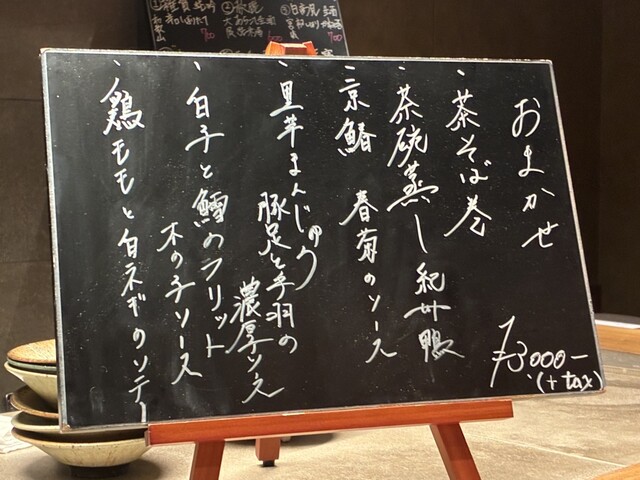 おまかせ
・茶そば巻
・茶碗蒸し 紀州鴨
・京鰆 春菊のソース
・里芋まんじゅう
豚足と手羽の
濃厚ソース
・白子と鱈のフリット
木の子ソース
・鶏モモと白ネギのソテー
¥3000-
(+tax)
700
700